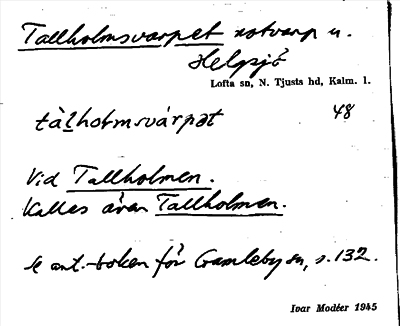 Tallholmsvarpet notvarp u.
Helgsjö
Lofta sn, N. Tjusts hd, Kalm. l.
tàl̲holmsvárpət 48
Vid Tallholmen.
Kallas även Tallholmen.
Se ant.-boken för Gamleby sn, s. 132.
Ivar Modéer 1945